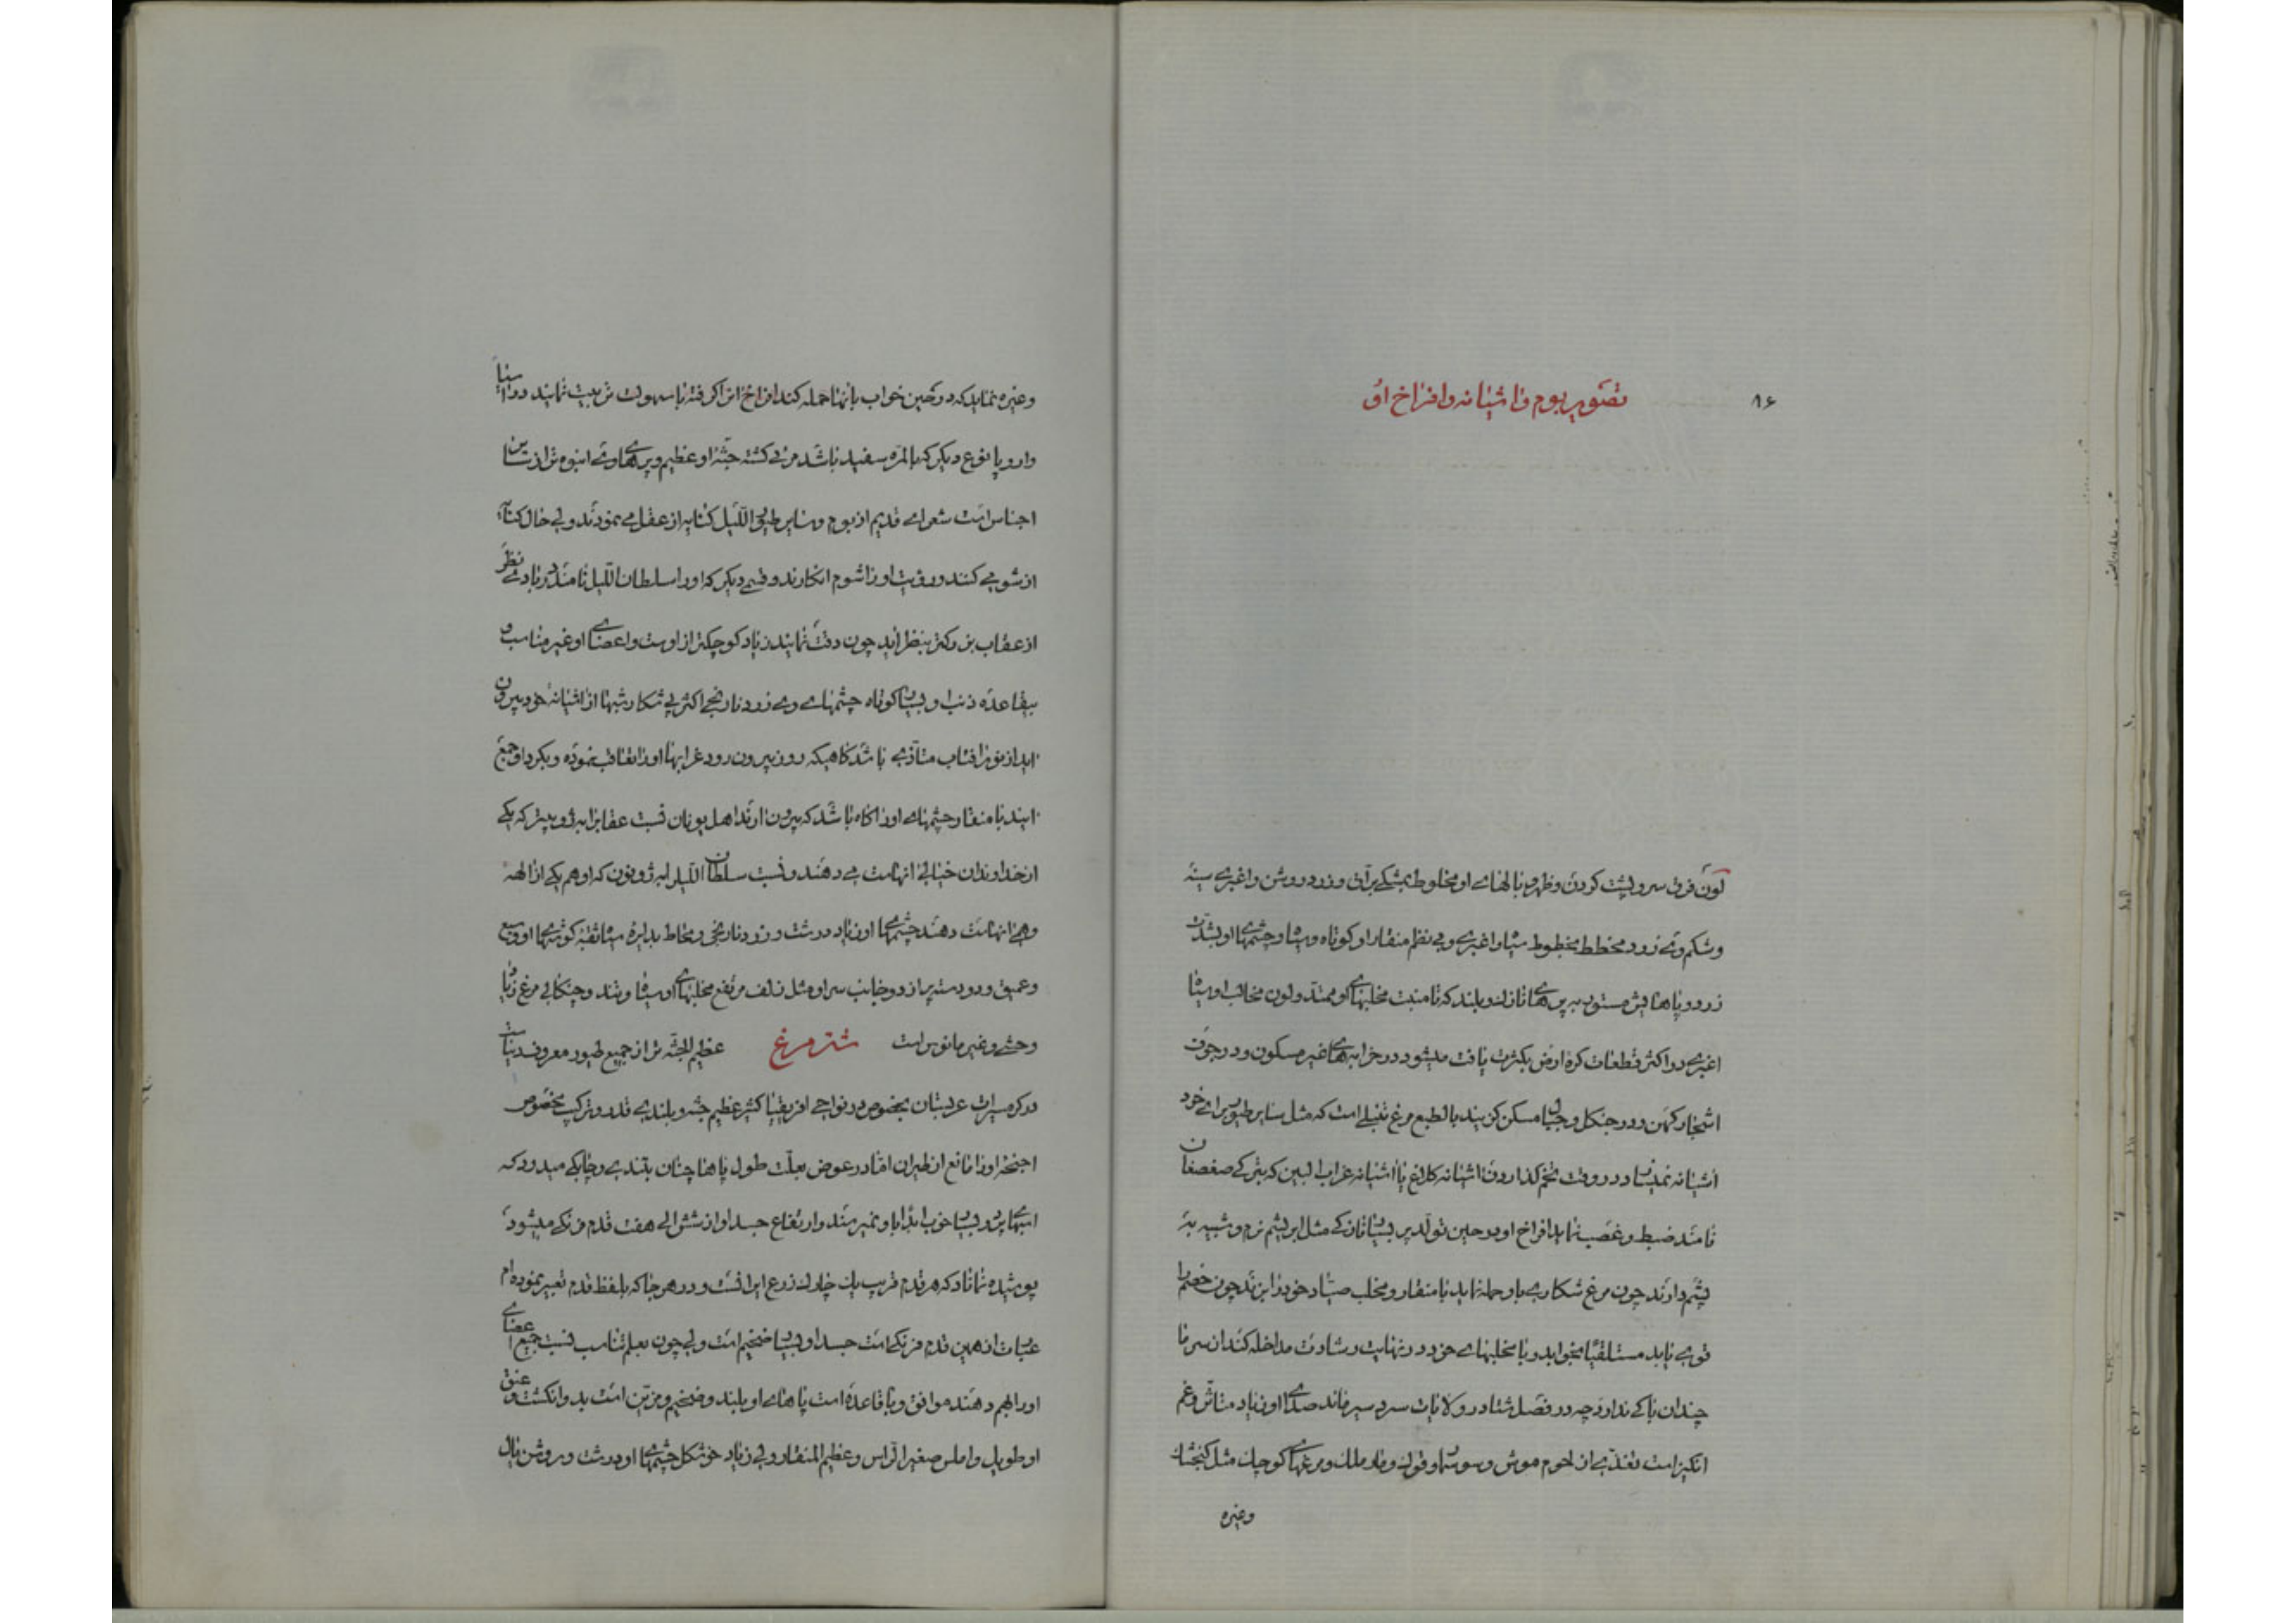 ۸۶
تصویر بوم و اشیانه و افراخ او
لون فرق سر و پشت کردن و ظهر و بالهای او مخلوط بمشکی براق و زرد روشن و اغبری سینه
و شکم وی زرد مخطط بخطوط سیاه و اغبری و بی نظم منقار او کوتاه و سیاه و چشمهای او بشدت
زرد و پاهایش مستور به پرهای نازک و بلند که تا منبت مخلبهای او ممتد و لون مخالب او سیاه
اغبری در اکثر قطعات کره ارض بکثرت یافت میشود در خرابه های غیر مسکون و در جوف
اشجار کهن و در جنگل و جبال مسکن کزیند بالطبع مرغ تنبلی است که مثل سایر طیور برای خود
اشیانه نمیسازد در وقت تخم کذاردن اشیانه کلاغ یا اشیانه غراب البین که بترکی صغصغان
نامند ضبط و غصب نماید افراخ او در حین تولد پر بسیار نازکی مثل ابریشم نرم و شبیه به
پشم دارند چون مرغ شکاری باو حمله نماید با منقار و مخلب صیاد خود را بزند چون خصم را
قوی یابد مستلقیا بخوابد و با مخلبهای خود در نهایت رشادت مداخله کند از سرما
چندان باکی ندارد چه در فصل شتا در ولایات سرد سیر ماند صدای او زیاد متاثر و غم
انکیز است تغذی از لحوم موش و سوسمار و قوک و مارملک و مرغهای کوچک مثل کنجشک
وغیره
وغیره نماید که در حین خواب بانها حمله کند افراخ انرا کرفته باسهولت تربیت نمایند در اسیا
و اروپا نوع دیکر که بالمره سفید باشد مرئی کشته جثه او عظیم و پرهای وی انبوه تر از سایرین
اجناس است شعرای قدیم از بوم و سایر طیور اللیل کنایه از عقل می نمودند ولی حال کنایه
از شومی کنند و رویت او را شوم انکارند و قسمی دیکر که او را سلطان اللیل نامند در بادی نظر
از عقاب بزرکتر بنظر اید چون دقت نمایند زیاد کوچکتر از اوست و اعضای او غیر مناسب و
بیقاعده ذنب او بسیار کوتاه چشمهای وی زرد نارنجی اکثر پی شکار شبها از اشیانه خود بیرون
اید از نور افتاب متاذی باشد کاهیکه روز بیرون رود غرابها او را تعاقب نموده و بکرد او جمع
ایند با منقار چشمهای او را کاه باشد که بیرون ارند اهل یونان نسبت عقاب را به ژوپیتر که یکی
از خداوندان خیالی انهاست می دهند و نسبت سلطان اللیل را به ژونون که او هم یکی از الهه
وهمی انهاست دهند چشمهای او زیاد درشت و زرد نارنجی و محاط بدایره سیاه ثقبه کوشهای او وسیع
و عمیق و دو دسته پر از دو جانب سر او مثل زلف مرتفع مخلبهای او سیاه و تند و چنکالی مرغ زیاد
وحشی و غیر مانوس است شتر مرغ عظیم الجثه تر از جمیع طیور معروفه دنیاست
در کرمسیرات عربستان بخصوص در نواحی افریقیا کثیر عظیم جثه و بلندی قد و ترکیب مخصوص
اجنحه او را مانع از طیران افتاد در عوض بعلت طول پاها چنان بتندی و چابکی میدود که
اسبهای پردو بسیار خوب ابدا باو نمیرسند و ارتفاع جسد او از شش الی هفت قدم فرنکی میشود
پوشیده نماناد که هر قدم قریب یک چارک ذرع ایرانست و در هر جا که بلفظ قدم تعبیر نموده ام
عبارت از همین قدم فرنکی است جسد او بسیار ضخیم است ولی چون بعلم تناسب نسبت جمیع اعضای
او را بهم دهند موافق و با قاعده است پاهای او بلند و ضخیم و مزین است بدو انکشت و عنق
او طویل و املس صغیر الراس و عظیم المنقار ولی زیاد خوشکل چشمهای او درشت و روشن بال